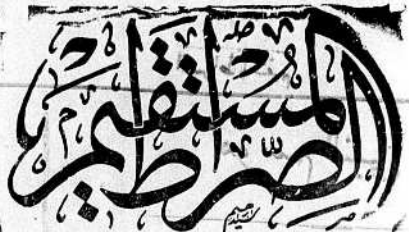 الصِّرَاطُ
المُسْتَقِيم